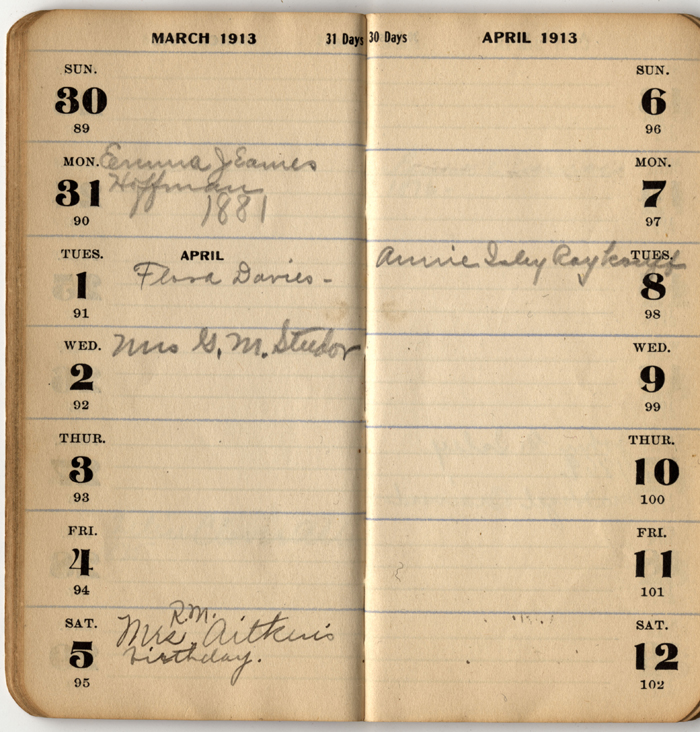 MARCH 1913 31 Days
SUN.
30
89
MON.
31
90
Emma J Eames
Hoffman
1881
TUES.
1
91
APRIL
Flora Davies -
WED.
2
92
Mrs G. M. Studor
THUR.
3
93
FRI.
4
94
SAT.
5
95
R.M.
Mrs. Aitken's
birthday.
30 Days APRIL 1913
SUN.
6
96
MON.
7
97
TUES.
8
98
Annie
WED.
9
99
THUR.
10
100
FRI.
11
101
SAT.
12
102